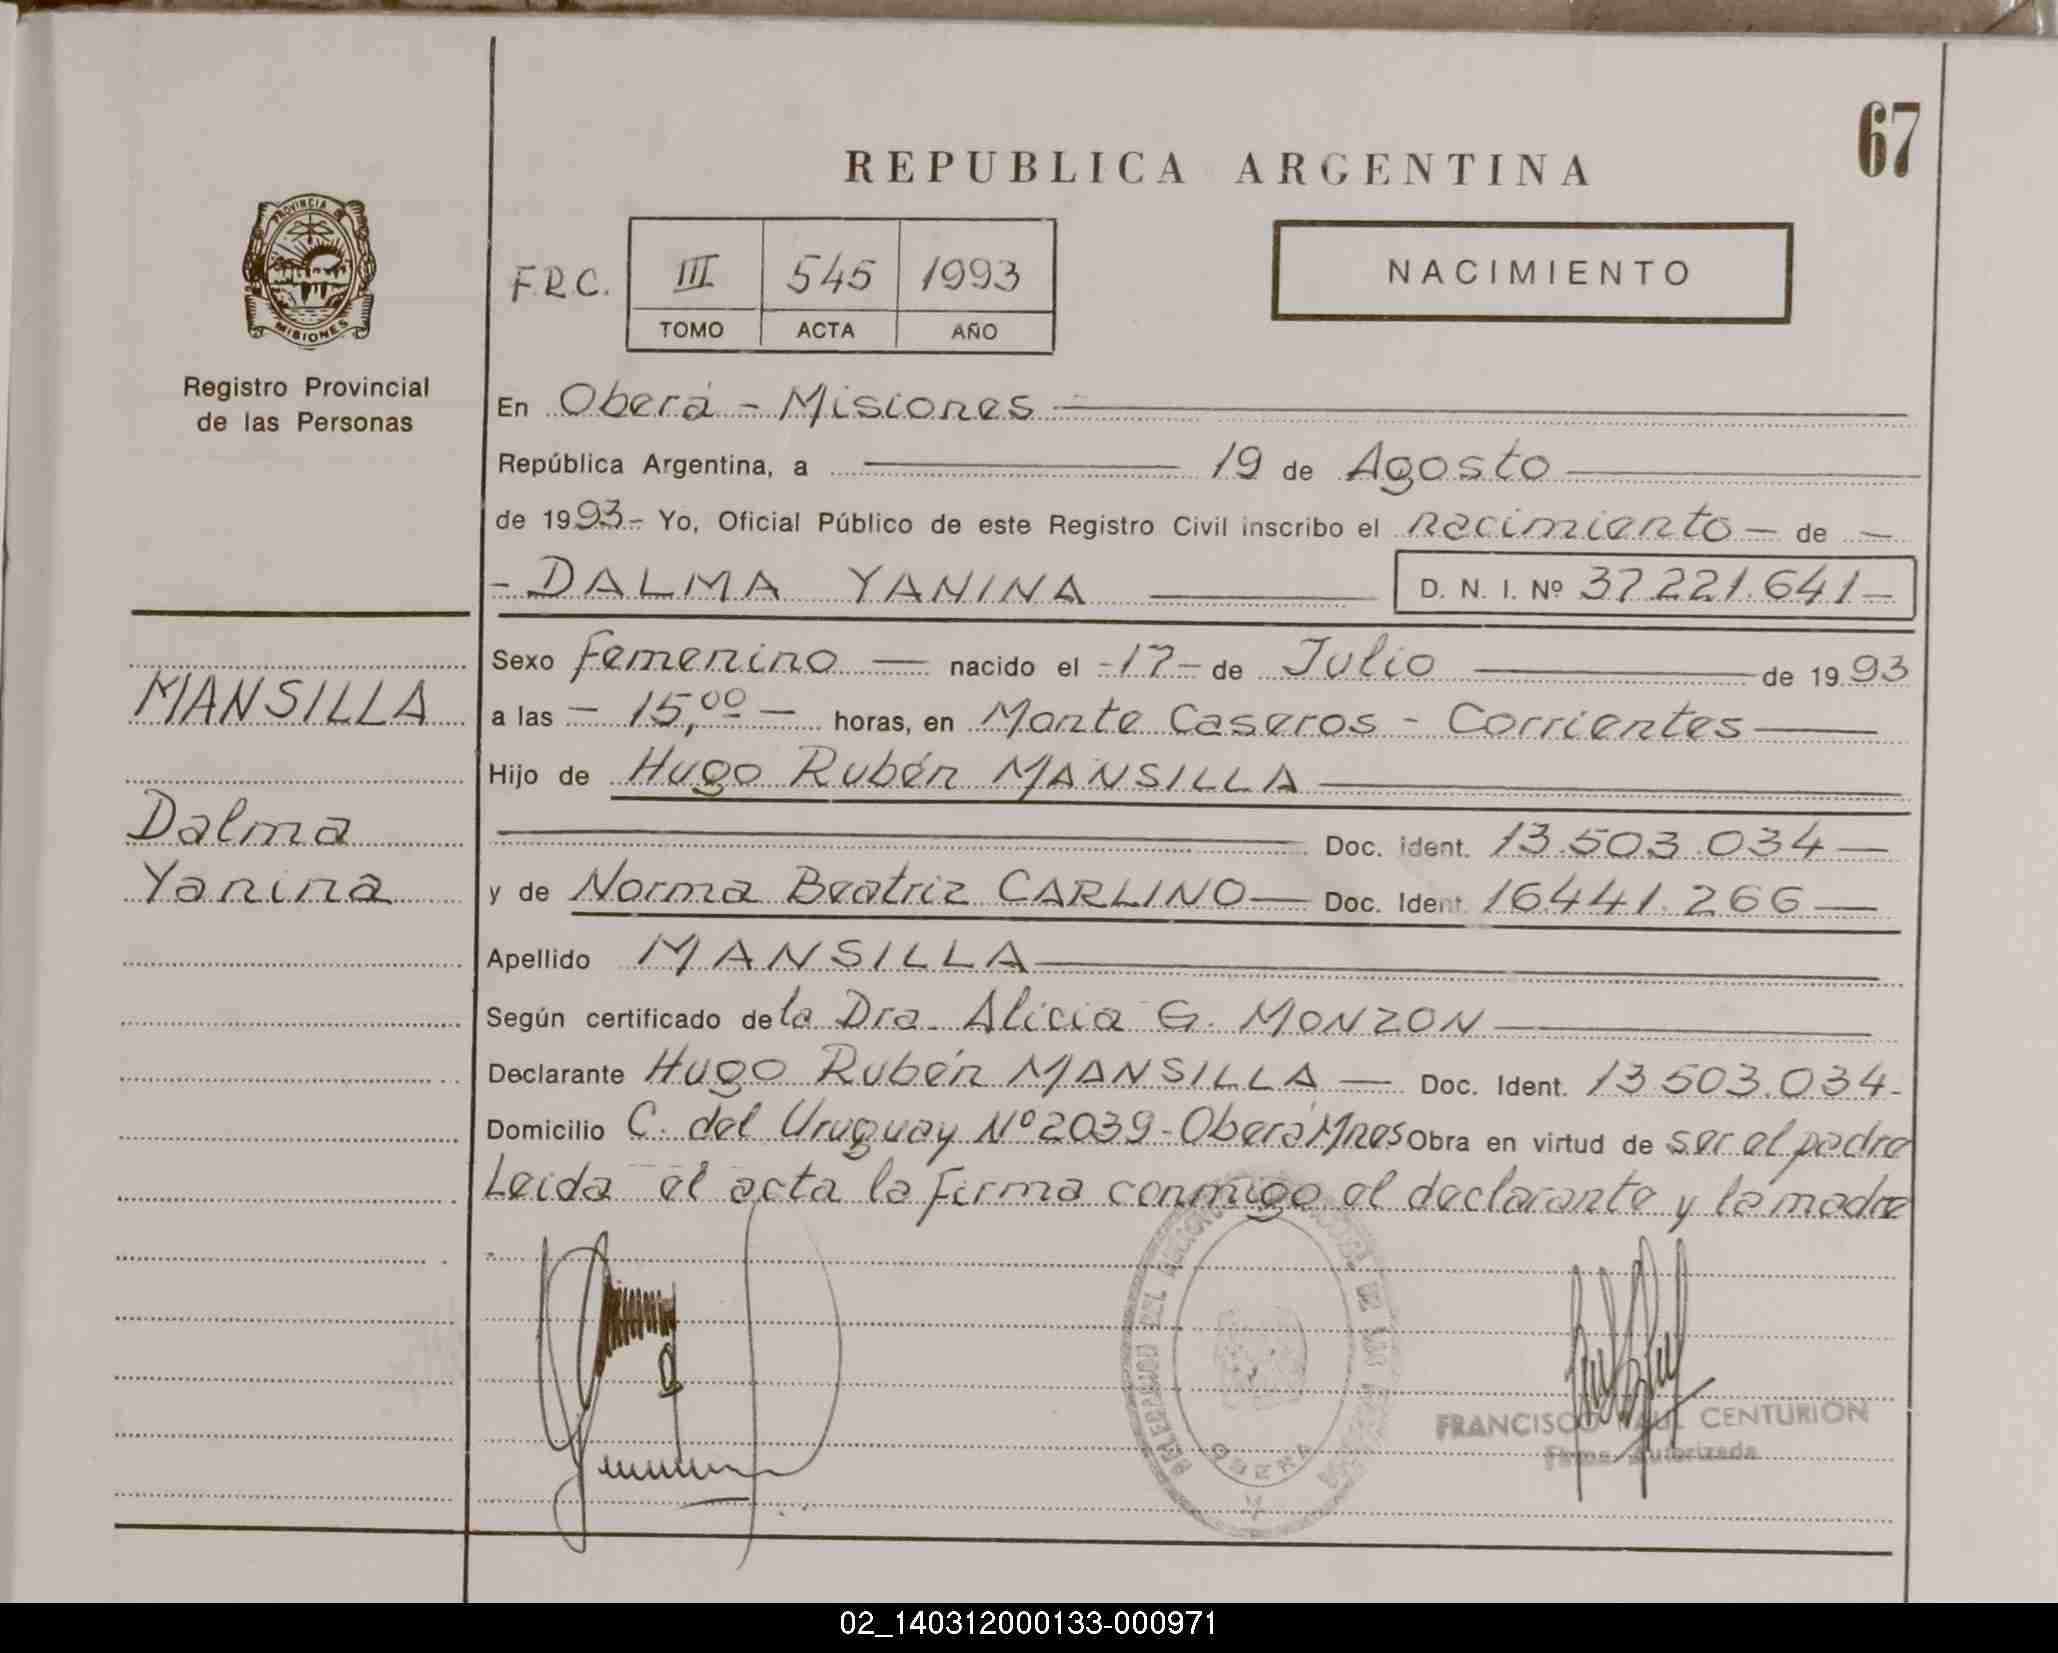 67
REPUBLICA ARGENTINA
PROVINCIA
MISIONES
Registro Provincial
de las Personas
F.R.C. III 545 1993
TOMO ACTA AÑO
NACIMIENTO
En Oberá - Misiones
República Argentina, a 19 de Agosto
de 1993- Yo, Oficial Público de este Registro Civil inscribo el nacimiento - de -
- DALMA YANINA D. N. I. Nº 37.221.641-
Sexo Femenino nacido el -17- de Julio de 1993
a las - 15,00 - horas, en Monte Caseros - Corrientes
Hijo de Hugo Rubén MANSILLA
Doc. ident. 13.503.034-
y de Norma Beatriz CARLINO- Doc. Ident. 16.441.266-
Apellido MANSILLA
Según certificado de la Dra. Alicia G. MONZON
Declarante Hugo Rubén MANSILLA - Doc. Ident. 13.503.034-
Domicilio C. del Uruguay Nº 2039-Oberá Mnes Obra en virtud de ser el padre
Leida el acta la firma conmigo el declarante y la madre
MANSILLA
Dalma
Yanina
OBERA
FRANCISCO RAUL CENTURION
Firma Autorizada
02_140312000133-000971